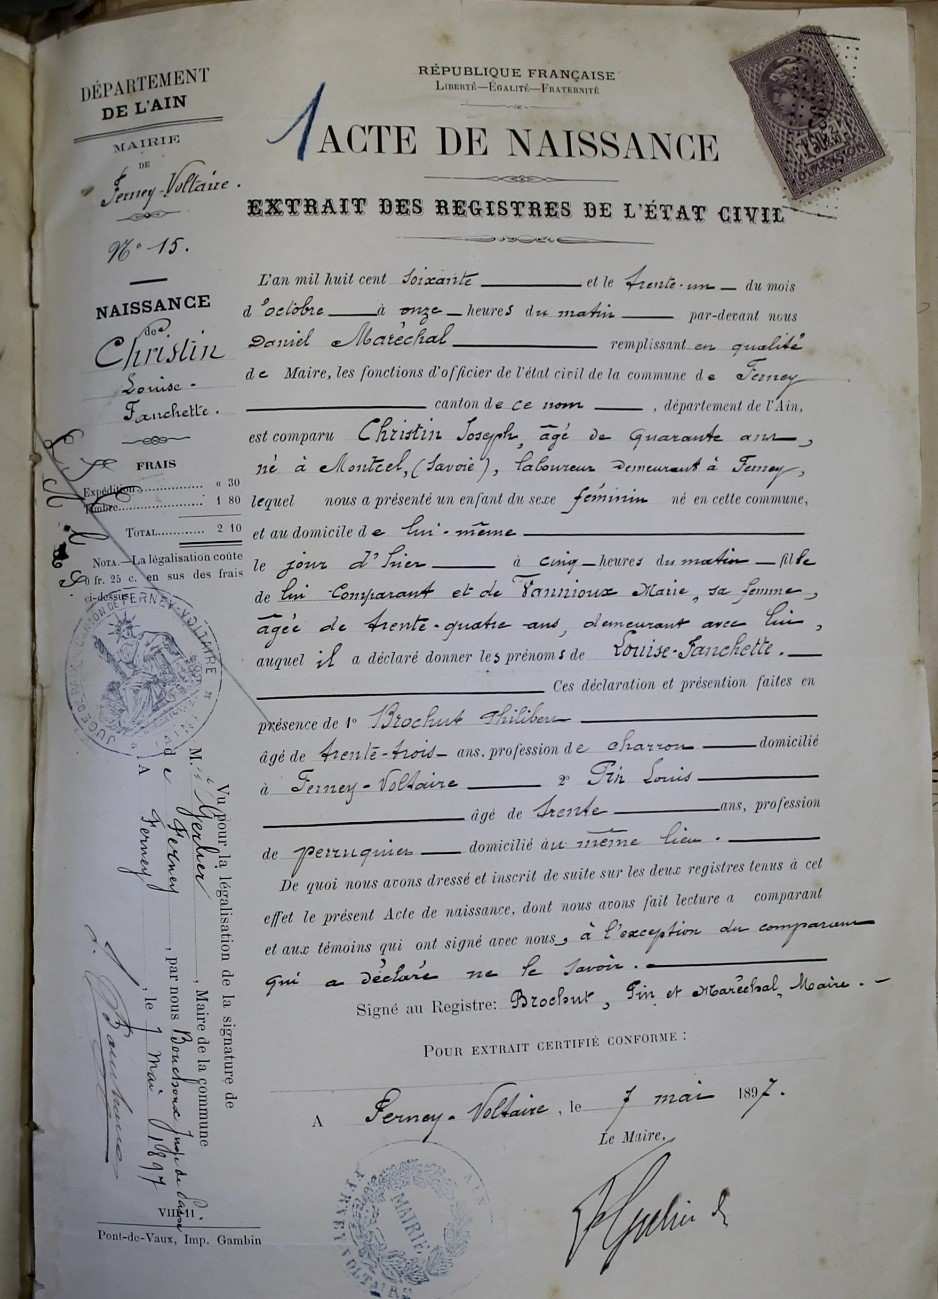 DÉPARTEMENT
DE L'AIN
MAIRIE
DE
Ferney-Voltaire.
N° 15.
NAISSANCE
de
Christin
Louise-
Fanchette.
FRAIS
Expédition............... « 30
Timbre.................. 1 80
TOTAL............ 2 10
NOTA.—La légalisation coûte
0 fr. 25 c. en sus des frais
ci-dessus.
RÉPUBLIQUE FRANÇAISE
LIBERTÉ—ÉGALITÉ—FRATERNITÉ
1
ACTE DE NAISSANCE
EXTRAIT DES REGISTRES DE L'ÉTAT CIVIL
DIMENSION
L'an mil huit cent soixante et le trente-un du mois
d'octobre à onze heures du matin par-devant nous
Daniel Maréchal remplissant en qualité
de Maire, les fonctions d'officier de l'état civil de la commune de Ferney
canton de ce nom, département de l'Ain,
est comparu Christin Joseph, âgé de quarante ans,
né à Montcel, (Savoie), laboureur demeurant à Ferney,
lequel nous a présenté un enfant du sexe féminin né en cette commune,
et au domicile de lui-même
le jour d'hier à cinq heures du matin fille
de lui comparant et de Vannioux Marie, sa femme,
âgée de trente-quatre ans, demeurant avec lui,
auquel il a déclaré donner les prénoms de Louise-Fanchette.
Ces déclaration et présention faites en
présence de 1° Brochut Philibert
âgé de trente-trois ans, profession de charron domicilié
à Ferney-Voltaire 2° Pin Louis
âgé de trente ans, profession
de perruquier domicilié au même lieu.
De quoi nous avons dressé et inscrit de suite sur les deux registres tenus à cet
effet le présent Acte de naissance, dont nous avons fait lecture a comparant
et aux témoins qui ont signé avec nous, à l'exception du comparant
qui a déclaré ne le savoir.
Signé au Registre: Brochut, Pin et Maréchal, Maire.
POUR EXTRAIT CERTIFIÉ CONFORME :
A Ferney-Voltaire, le 7 mai 1897.
Le Maire,
MAIRIE
FERNEY VOLTAIRE
AIN
Vu pour la légalisation de la signature de
M. Gerlier, Maire de la commune
de Ferney, par nous Bouchoux Juge de Paix
A Ferney, le 7 mai 1897
VIII-11
Pont-de-Vaux, Imp. Gambin